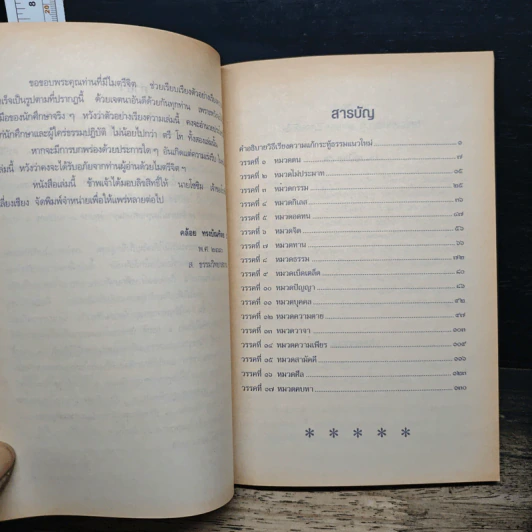 ขอขอบพระคุณท่านที่มีไมตรีจิต ช่วยเรียบเรียงตัวอย่าง
เร็จเป็นรูปตามที่ปรากฏนี้ ด้วยเจตนาอันดีด้วยกันทุกท่าน
มือของนักศึกษาจริง ๆ หวังว่าตัวอย่างเรียงความเล่มนี้
นักศึกษาและผู้ใคร่ธรรมปฏิบัติ ไม่น้อยไปกว่า ตรี โท ทั้งสองเล่มนั้น
หากจะมีการบกพร่องด้วยประการใด ๆ อันเกิดแต่ความ
เล่มนี้ หวังว่าคงจะได้รับอภัยจากท่านผู้อ่านด้วยไมตรีจิต
หนังสือเล่มนี้ ข้าพเจ้าได้มอบลิขสิทธิ์ให้ นาย
เลี่ยงเชียง จัดพิมพ์จำหน่ายเพื่อให้แพร่หลายต่อไป
คล้อย ทรงบัณฑิตย์
พ.ศ.
ส. ธรรมวิทยา
สารบัญ
คำอธิบายวิธีเรียงความแก้กระทู้ธรรมแนวใหม่ ๑
วรรคที่ ๑ หมวดตน ๗
วรรคที่ ๒ หมวดไม่ประมาท ๑๕
วรรคที่ ๓ หมวดกรรม ๒๕
วรรคที่ ๔ หมวดกิเลส ๓๖
วรรคที่ ๕ หมวดอดทน ๔๗
วรรคที่ ๖ หมวดจิต ๕๖
วรรคที่ ๗ หมวดทาน ๖๖
วรรคที่ ๘ หมวดธรรม ๗๒
วรรคที่ ๙ หมวดเบ็ดเตล็ด ๘๐
วรรคที่ ๑๐ หมวดปัญญา ๘๖
วรรคที่ ๑๑ หมวดบุคคล ๙๒
วรรคที่ ๑๒ หมวดความตาย ๙๗
วรรคที่ ๑๓ หมวดวาจา ๑๐๓
วรรคที่ ๑๔ หมวดความเพียร ๑๐๙
วรรคที่ ๑๕ หมวดสามัคคี ๑๑๖
วรรคที่ ๑๖ หมวดศีล ๑๒๓
วรรคที่ ๑๗ หมวดคบหา ๑๓๐